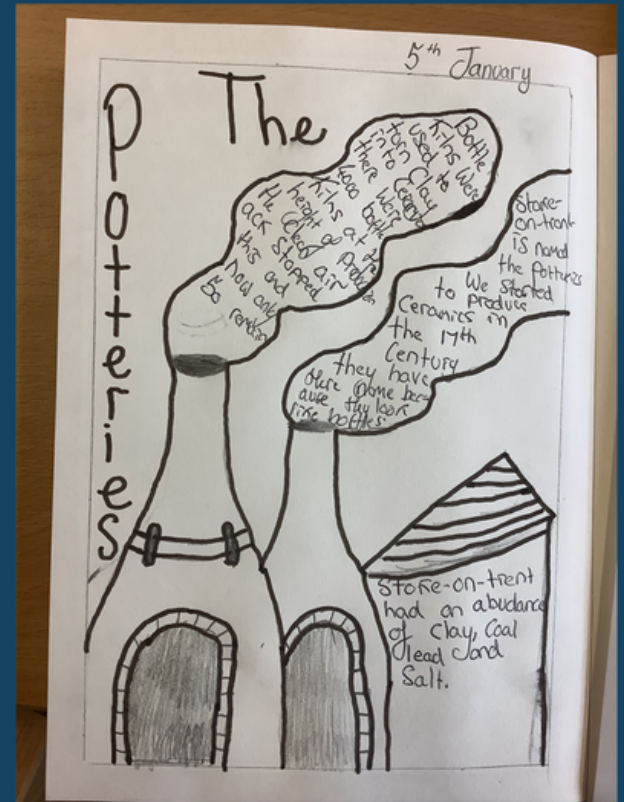 5th January
The
Potteries
Bottle
kilns were
used to
turn Clay
in to Ceramic
there were
4000 bottle
kilns at the
height of Production
the Clean air
ack stopped
this and
now only
50 remain
Stoke-
on-trent
is named
the Potteries
We started
to produce
Ceramics in
the 17th
Century
they have
there name bec-
ause they look
like bottles
Stoke-on-trent
had an abudance
of Clay, Coal
lead and
Salt.